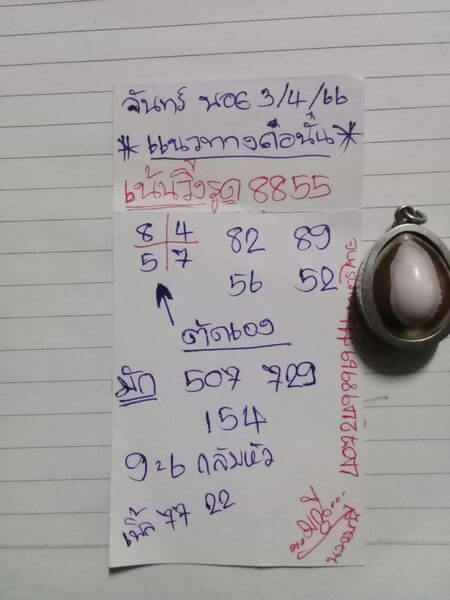 จันทร์ นอย 3/4/66
*แนวทางคือนั้น*
เน้นวิ่งรูด 8855
8 4 82 89
5 7 56 52
ตัดเอง
มัก 507 729
154
9=6 กลับหัว
เบิ้ล 77 22